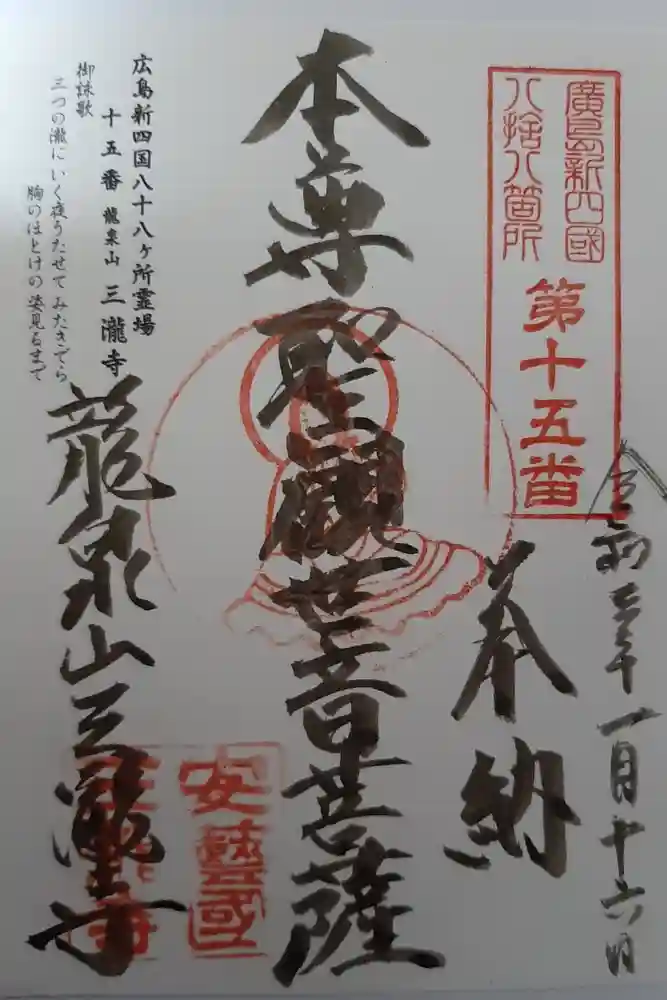 廣島新四國
八捨八箇所
第十五番
令和三年一月十六日
奉納
本尊聖觀世音菩薩
広島新四国八十八ヶ所霊場
十五番 龍泉山 三瀧寺
御詠歌
三つの瀧にいく夜うたせて みたきでら
胸のほとけの 姿見るまで
龍泉山三瀧寺
安藝國
三瀧寺